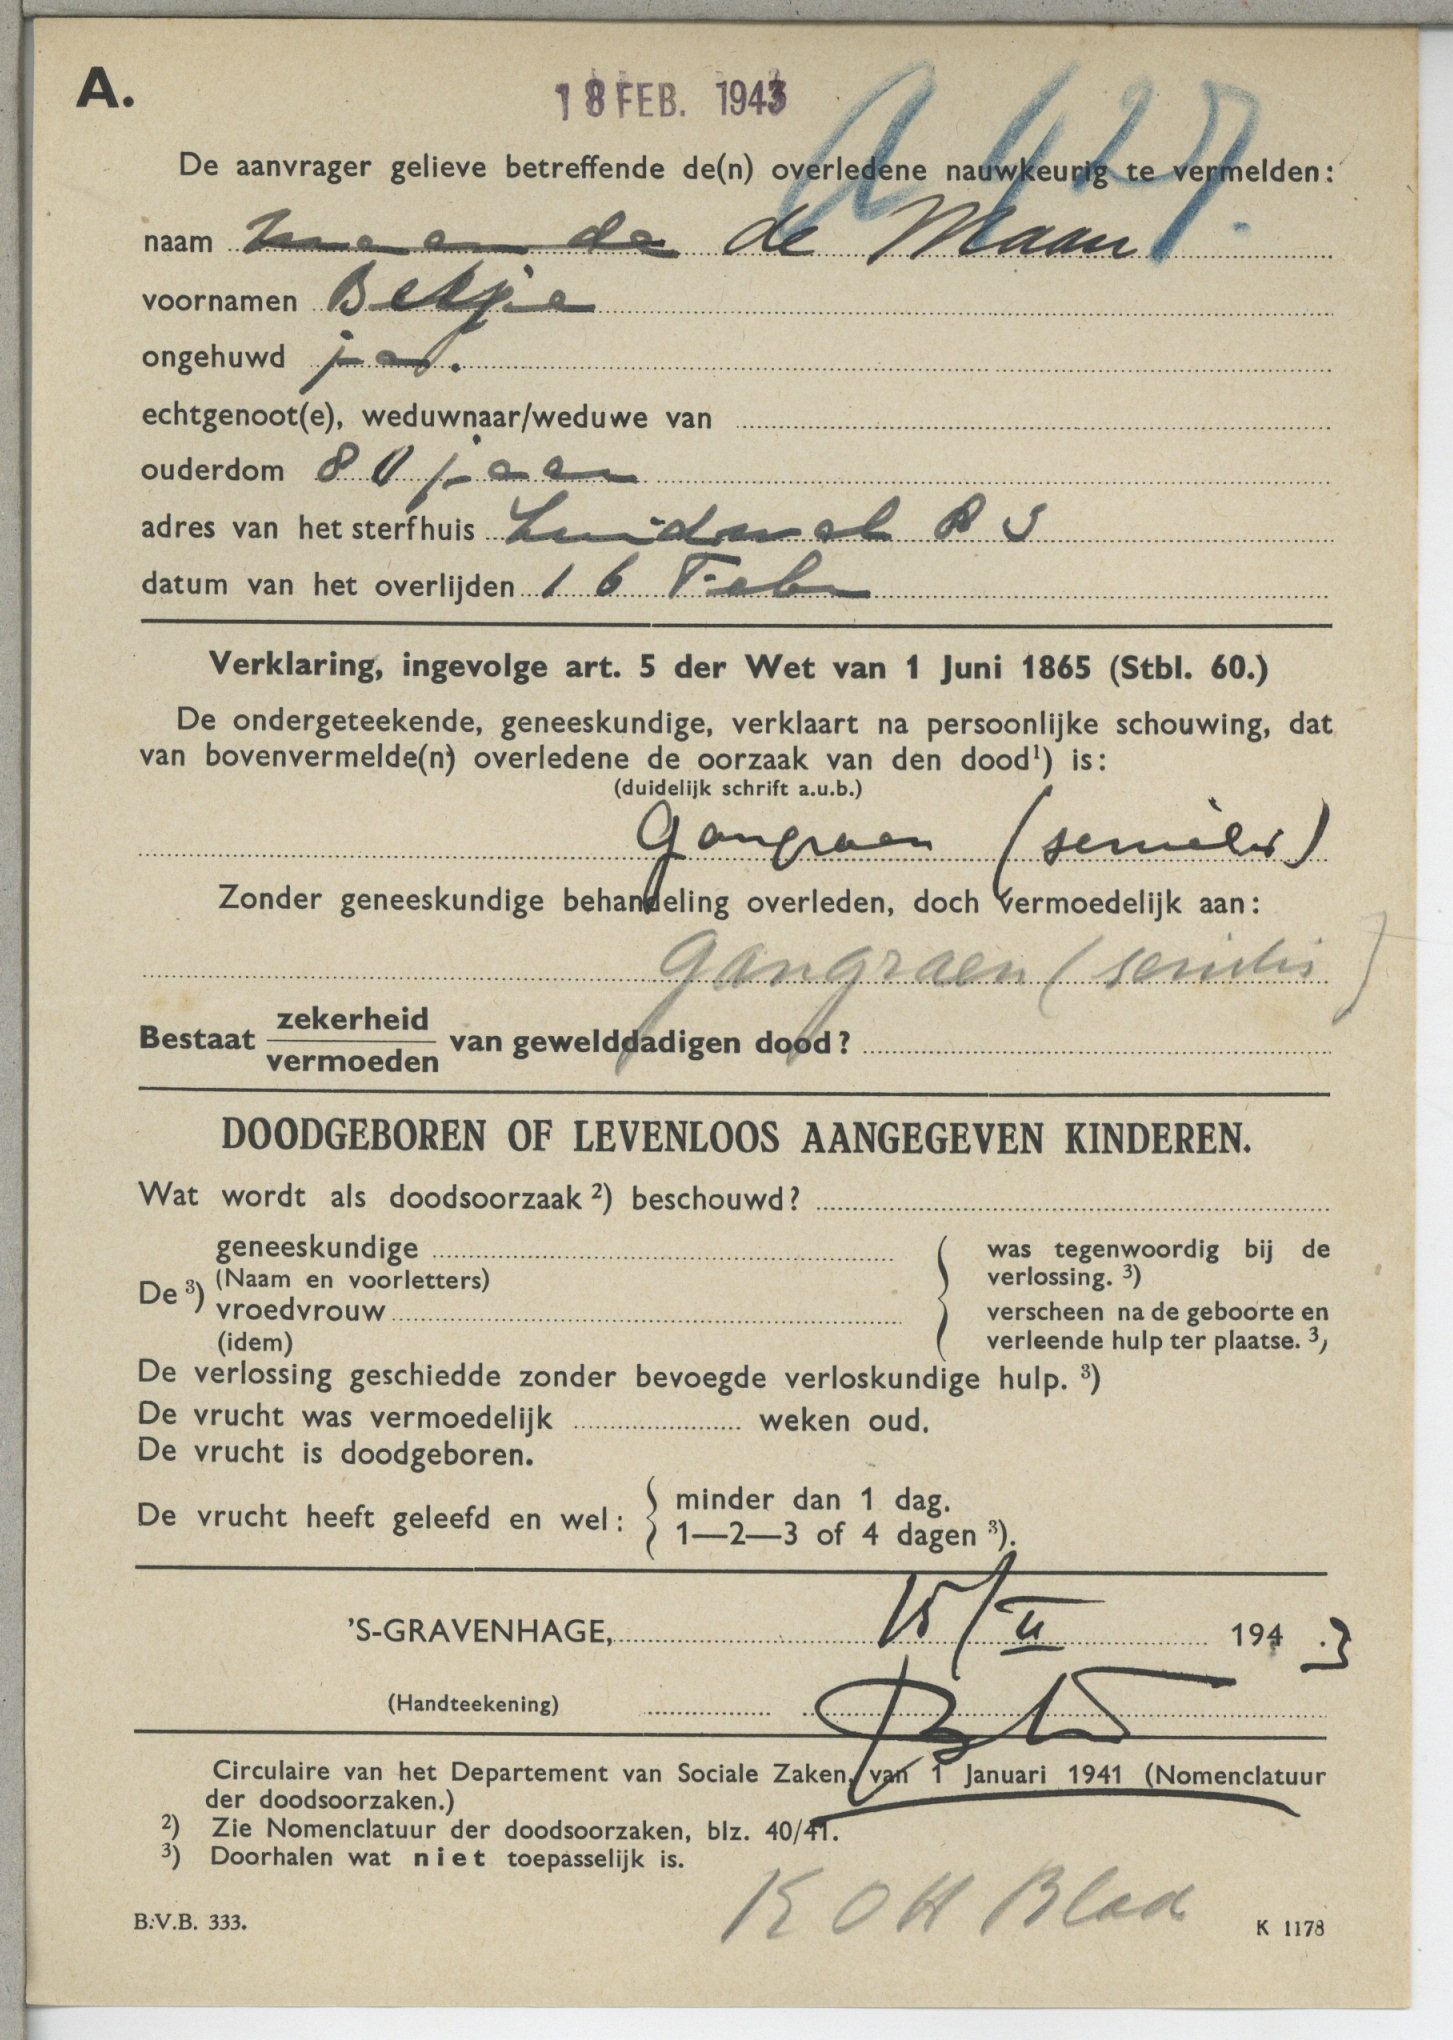 A.
18 FEB. 1943
A 427.
De aanvrager gelieve betreffende de(n) overledene nauwkeurig te vermelden:
naam de Maan
voornamen Betje
ongehuwd ja.
echtgenoot(e), weduwnaar/weduwe van
ouderdom 80 jaar
adres van het sterfhuis Zuidwal 83
datum van het overlijden 16 Febr
Verklaring, ingevolge art. 5 der Wet van 1 Juni 1865 (Stbl. 60.)
De ondergeteekende, geneeskundige, verklaart na persoonlijke schouwing, dat
van bovenvermelde(n) overledene de oorzaak van den dood¹) is:
(duidelijk schrift a.u.b.)
Gangraen (senilis)
Zonder geneeskundige behandeling overleden, doch vermoedelijk aan:
Gangraen (senilis)
Bestaat zekerheid van gewelddadigen dood?
vermoeden
DOODGEBOREN OF LEVENLOOS AANGEGEVEN KINDEREN.
Wat wordt als doodsoorzaak ²) beschouwd?
geneeskundige was tegenwoordig bij de
(Naam en voorletters) verlossing. ³)
De ³)
vroedvrouw verscheen na de geboorte en
(idem) verleende hulp ter plaatse. ³)
De verlossing geschiedde zonder bevoegde verloskundige hulp. ³)
De vrucht was vermoedelijk weken oud.
De vrucht is doodgeboren.
De vrucht heeft geleefd en wel: minder dan 1 dag.
1—2—3 of 4 dagen ³).
'S-GRAVENHAGE, 194 3
(Handteekening)
Circulaire van het Departement van Sociale Zaken, van 1 Januari 1941 (Nomenclatuur
der doodsoorzaken.)
²) Zie Nomenclatuur der doodsoorzaken, blz. 40/41.
³) Doorhalen wat niet toepasselijk is.
K O H Blad
B.V.B. 333.
K 1178